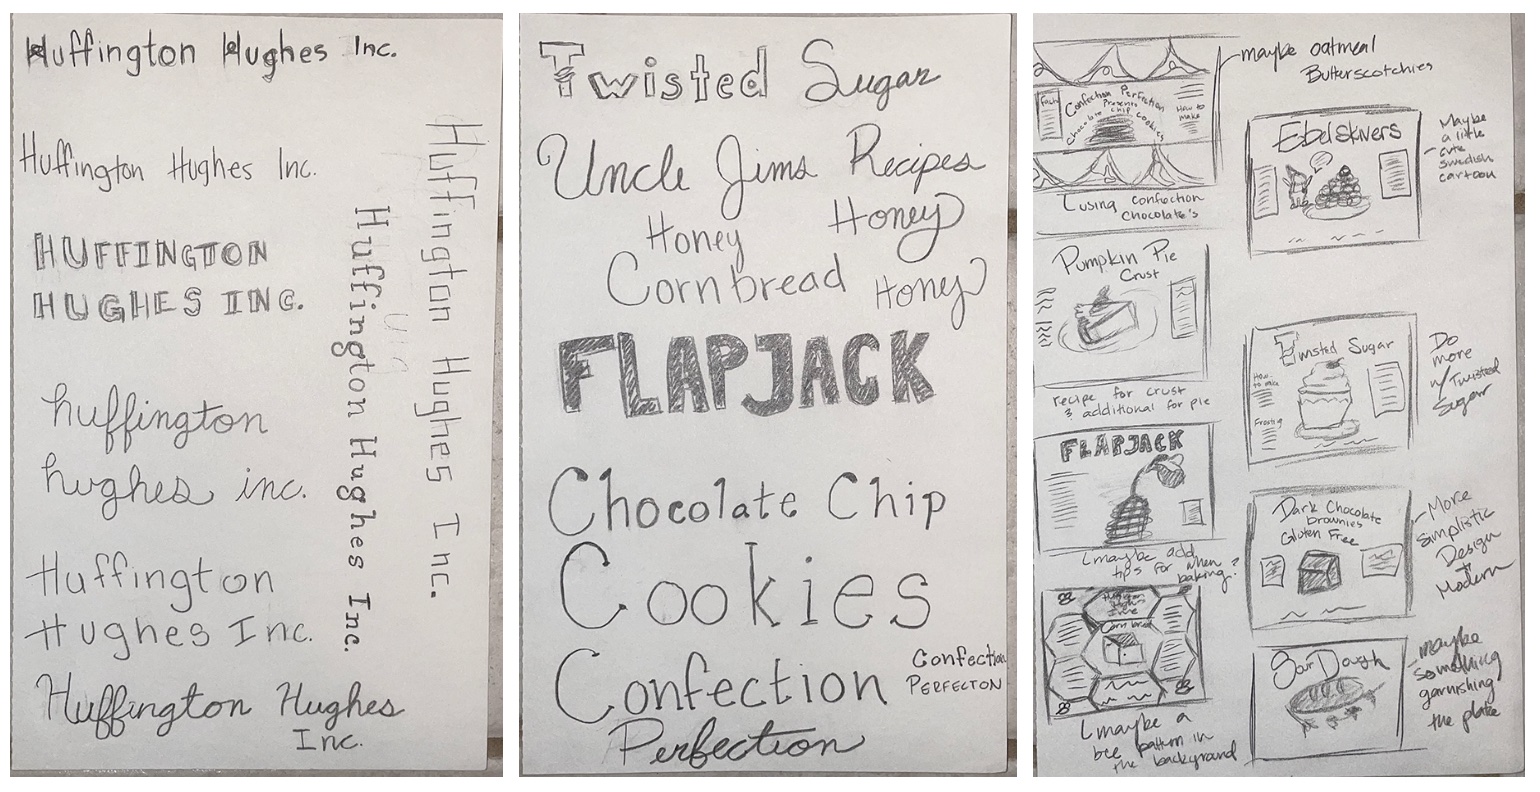 Huffington Hughes Inc.
Huffington Hughes Inc.
HUFFINGTON
HUGHES INC.
huffington
hughes inc.
Huffington
Hughes Inc.
Huffington Hughes
Inc.
Huffington Hughes Inc.
Huffington Hughes Inc.
Twisted Sugar
Uncle Jims Recipes
Honey
Honey
Cornbread
Honey
FLAPJACK
Chocolate Chip
Cookies
Confection
Perfection
Confection
PERFECTON
maybe oatmeal
Butterscotchies
Confection Perfection
Presents
Chocolate chip cookies
How to
make
using confection
chocolate's
Pumpkin Pie
Crust
recipe for crust
& additional for pie
FLAPJACK
maybe add
tips for when
baking?
Huffington
Hughes
Corn bread
maybe a
bee pattern in
the background
Ebelskivers
Maybe
a little
cute
swedish
cartoon
Twisted Sugar
How
to make
Frosting
Do
more
w/ Twisted
Sugar
Dark Chocolate
brownies
Gluten Free
More
simplistic
Design
+
Modern
Sour Dough
maybe
something
garnishing
the plate